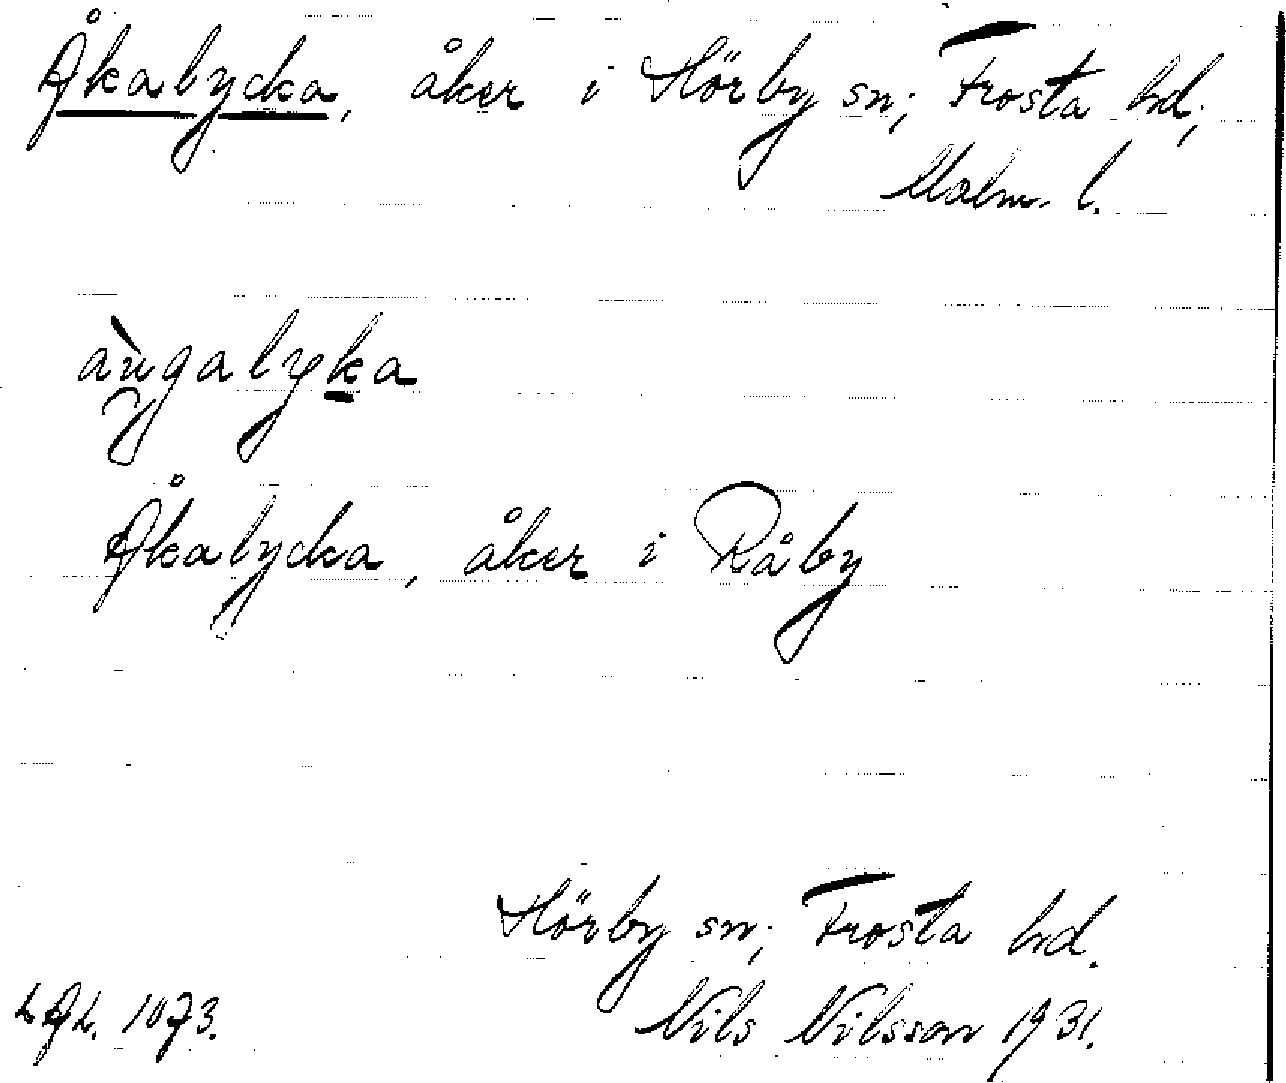 Åkalycka, åker i Hörby sn; Frosta hd;
Malm. l.
àu̯galyka
Åkalycka, åker i Råby
Hörby sn; Frosta hd.
L.A.L. 1073.
Nils Nilsson 1931.